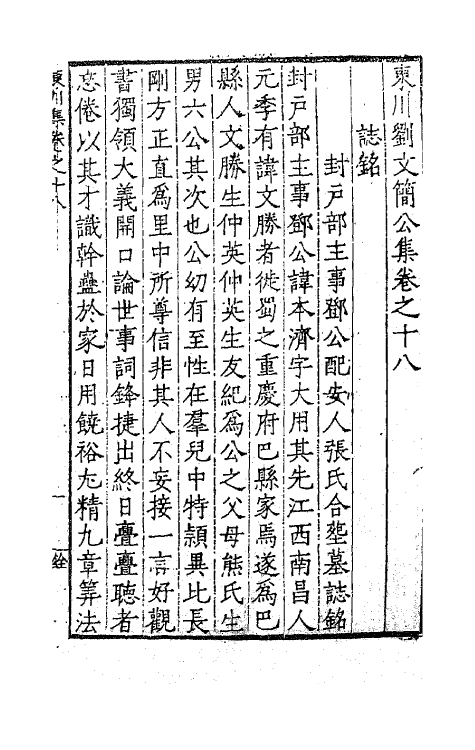 東川劉文簡公集卷之十八
誌銘
封戶部主事鄧公配安人張氏合塟墓誌銘
封戶部主事鄧公諱本濟字大用其先江西南昌人
元季有諱文勝者徙蜀之重慶府巴縣家焉遂爲巴
縣人文勝生仲英仲英生友紀爲公之父母熊氏生
男六公其次也公幼有至性在羣兒中特頴異比長
剛方正直爲里中所尊信非其人不妄接一言好觀
書獨領大義開口論世事詞鋒捷出終日亹亹聽者
忘倦以其才識幹蠱於家日用饒裕尢精九章筭法
東川集卷之十八
一